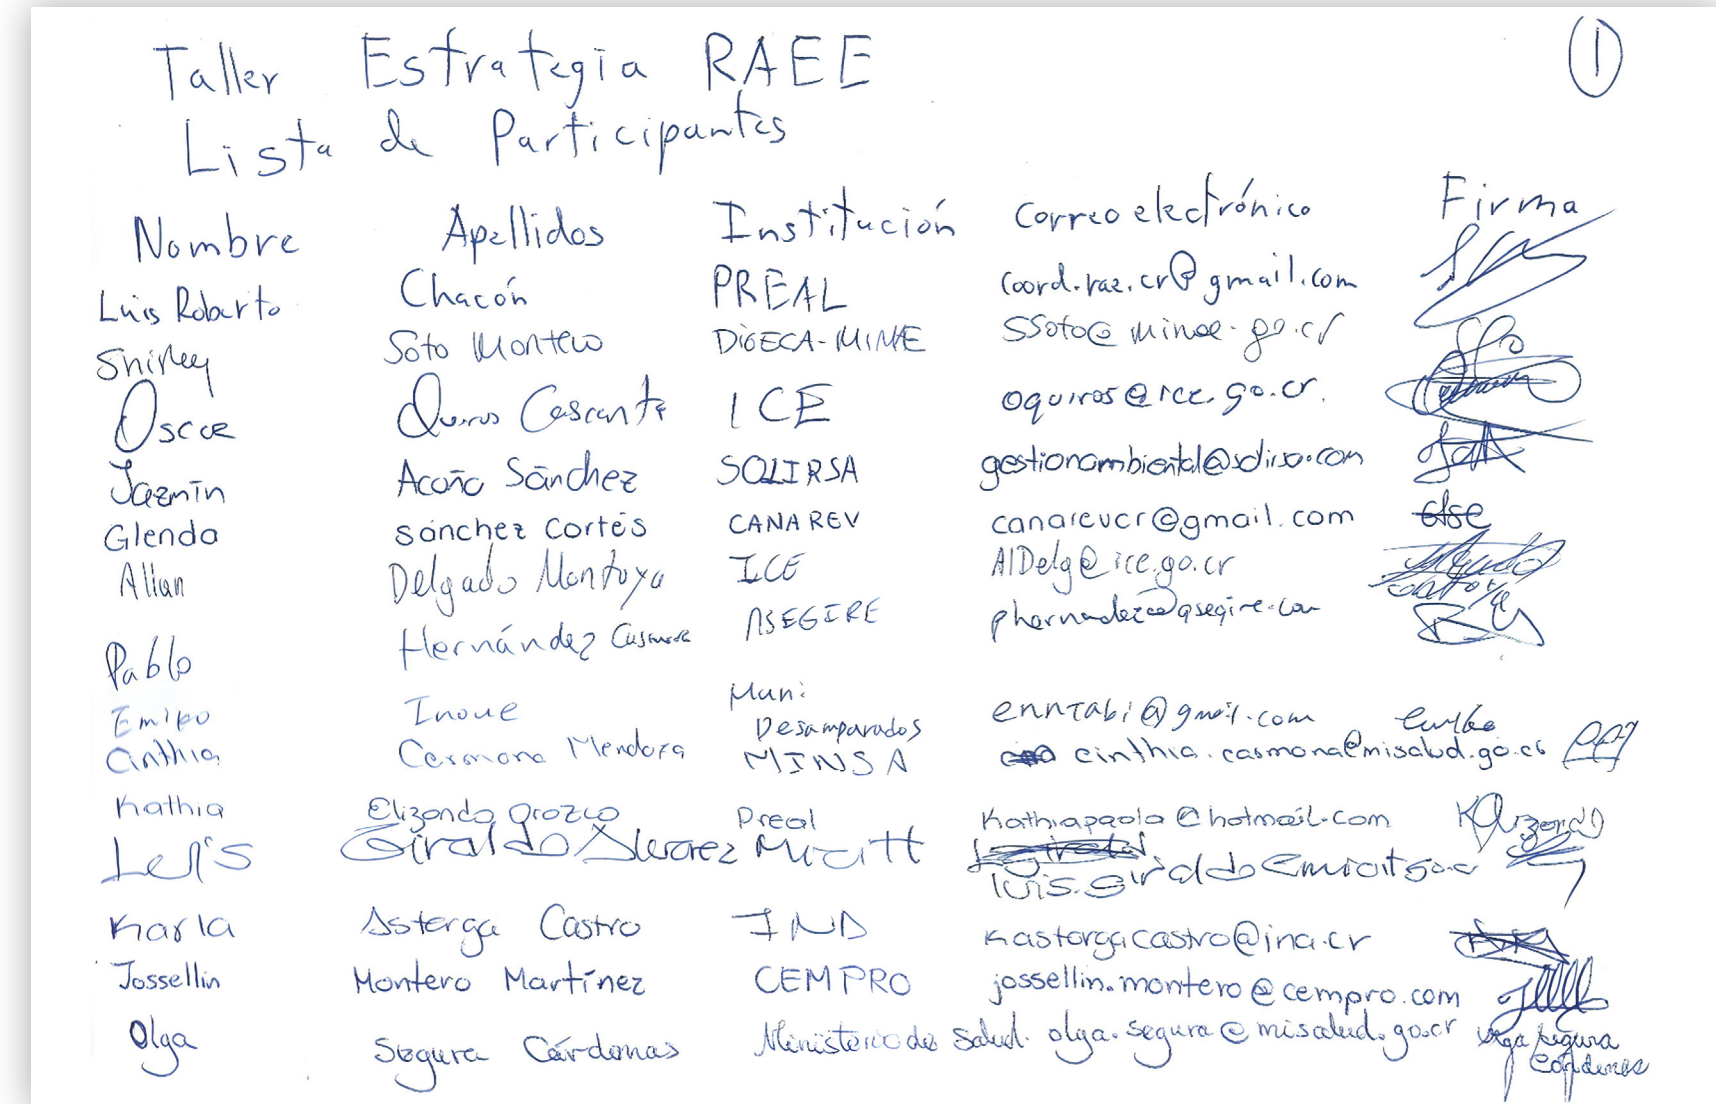 Taller Estrategia RAEE
1
Lista de Participantes
Nombre Apellidos Institución Correo electrónico Firma
Luis Roberto Chacón PREAL coord.rae.cr@gmail.com
Shirley Soto Montero DIGECA-MINAE ssoto@minae.go.cr
Oscar Quiros Cascante ICE oquiros@ice.go.cr.
Jazmín Acuña Sánchez SOLIRSA gestionambiental@solirsa.com
Glenda sánchez cortés CANAREV canarevcr@gmail.com
Allan Delgado Montoya ICE AlDelg@ice.go.cr
Pablo Hernández ASEGIRE phernandez@asegire.com
Emiko Inoue Muni: Desamparados enntabi@gmail.com
Cinthia Carmona Mendoza MINSA cinthia.carmona@misalud.go.cr
Kathia Elizondo Orozco Preal kathiapaola@hotmail.com
Luis Giraldo Álvarez Micitt luis.giraldo@micit.go.cr
Karla Astorga Castro INA kastorgacastro@ina.cr
Jossellin Montero Martínez CEMPRO jossellin.montero@cempro.com
Olga Segura Cárdenas Ministerio de Salud. olga.segura@misalud.go.cr Olga Segura Cárdenas